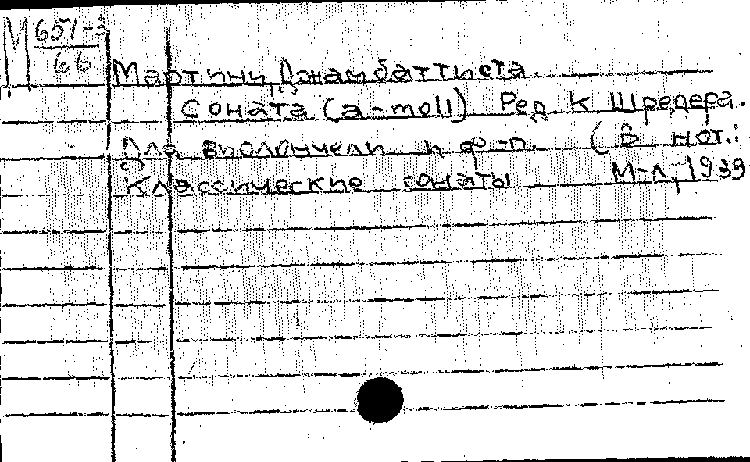 М 651-3
66
Мартини, Джамбаттиста.
Соната (a-moll) Ред К Шредера.
Для виолончели и ф-п. (В нот.:
Классические сонаты М-Л, 1939